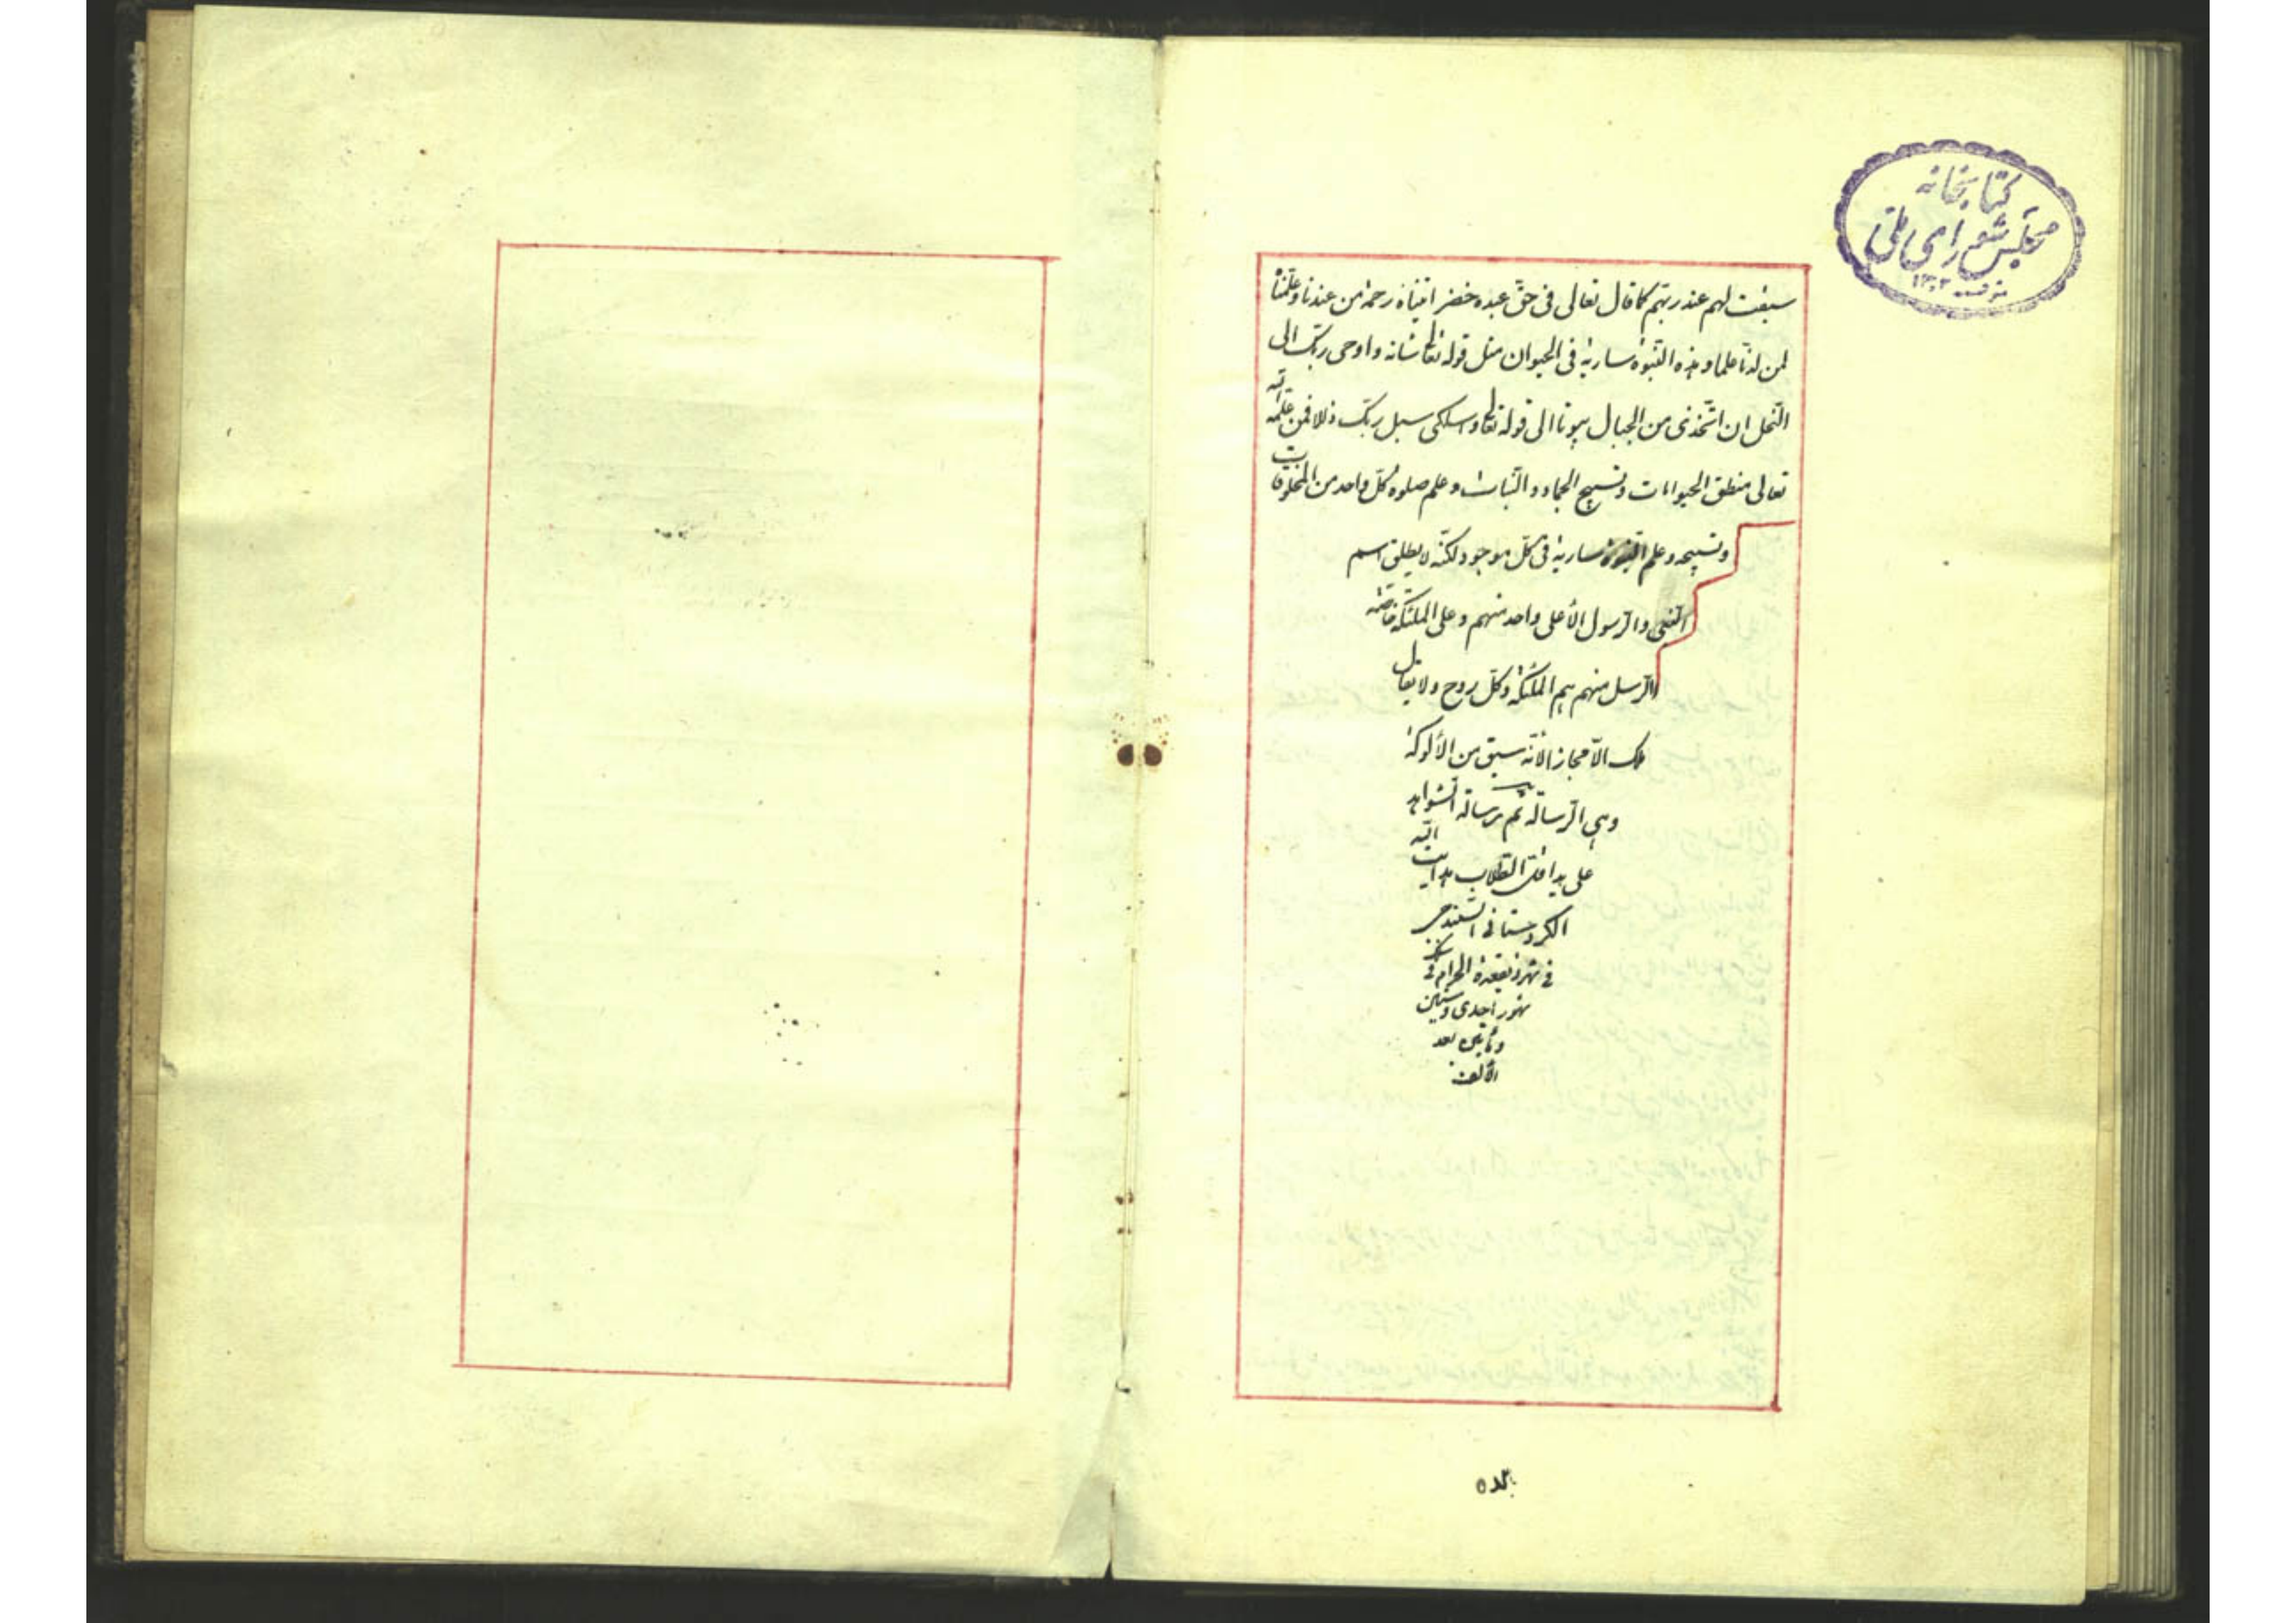 کتابخانه
مجلس شورای ملی
۱۳۰۲
سبقت لهم عند ربهم کما قال تعالی فی حق عبده خضر اتیناه رحمة من عندنا و علمناه
من لدنا علما و هذه النبوة ساریة فی الحیوان مثل قوله تعالی شانه و اوحی ربک الی
النحل ان اتخذی من الجبال بیوتا الی قوله تعالی و اسلکی سبل ربک ذللا فمن علمه الله
تعالی منطق الحیوانات و تسبیح الجماد و النبات و علم صلوة کل واحد من المخلوقات
و تسبیحه و علم النبوة ساریة فی کل موجود لکنه لا یطلق اسم
النبی و الرسول الا علی واحد منهم و علی الملئکة خاصة
الرسل منهم هم الملئکة و کل روح و لا یقال
ملک الا مجازا لانه سبق من الالوکة
و هی الرسالة تم رسالة الشواهد
علی ید اقل الطلاب هدایت الله
الکردستانی السنندجی
فی شهر ذیقعدة الحرام فی
شهور احدی و ستین
و مأتین بعد
الالف